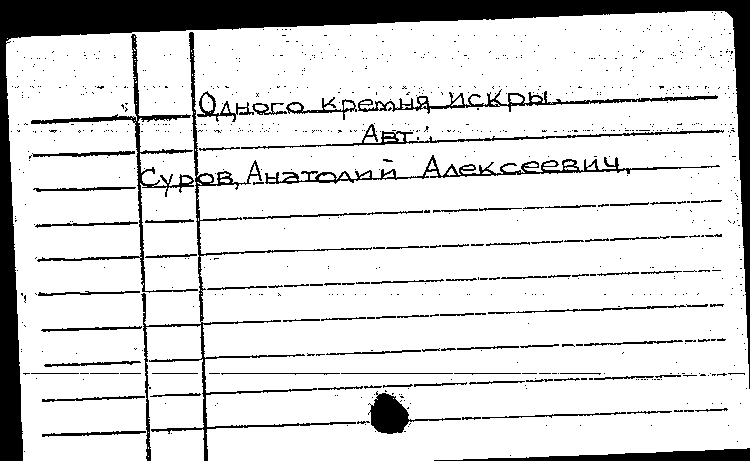 Одного кремня искры.
Авт.:
Суров, Анатолий Алексеевич.